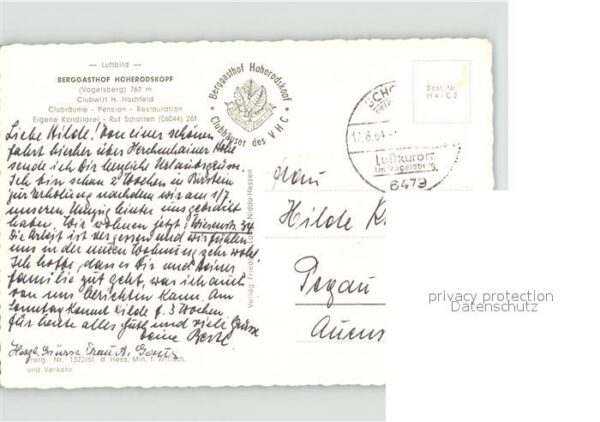 — Luftbild —
BERGGASTHOF HOHERODSKOPF
(Vogelsberg) 767 m
Clubwirt H. Hochfeld
Clubräume - Pension - Restauration
Eigene Konditorei - Ruf Schotten (06044) 261
Berggasthof Hoherodskopf
Clubhäuser des VHC
Best. Nr.
H4-C2
SCHO
17.8.64
Luftkurort
im Vogelsberg
6479
Liebe Hilde! Von einer schönen
Fahrt hierher über Herchenhainer Höhe
sende ich Dir herzliche Urlaubsgrüsse.
Ich bin schon 2 Wochen in
zur Erholung nachdem wir am 1/7
unseren Umzug hinter uns gebracht
haben. Wir wohnen jetzt 34
Die Arbeit ist vergessen und wir fühlen
uns in der neuen Wohnung sehr wohl.
Ich hoffe, dass es Dir und Deiner
Familie gut geht, was ich auch
von uns berichten kann. Am
Sonntag kommt Hilde f. 3 Wochen.
Für heute alles Gute und viele Grüsse
Deine
Herzl. Grüsse
Verlag Friedr. Nidda-Hessen
Frau
Hilde K
Pegau
Auens
Freig. Nr. 1322/61 d. Hess. Min. f. Wirtsch.
und Verkehr
privacy protection
Datenschutz